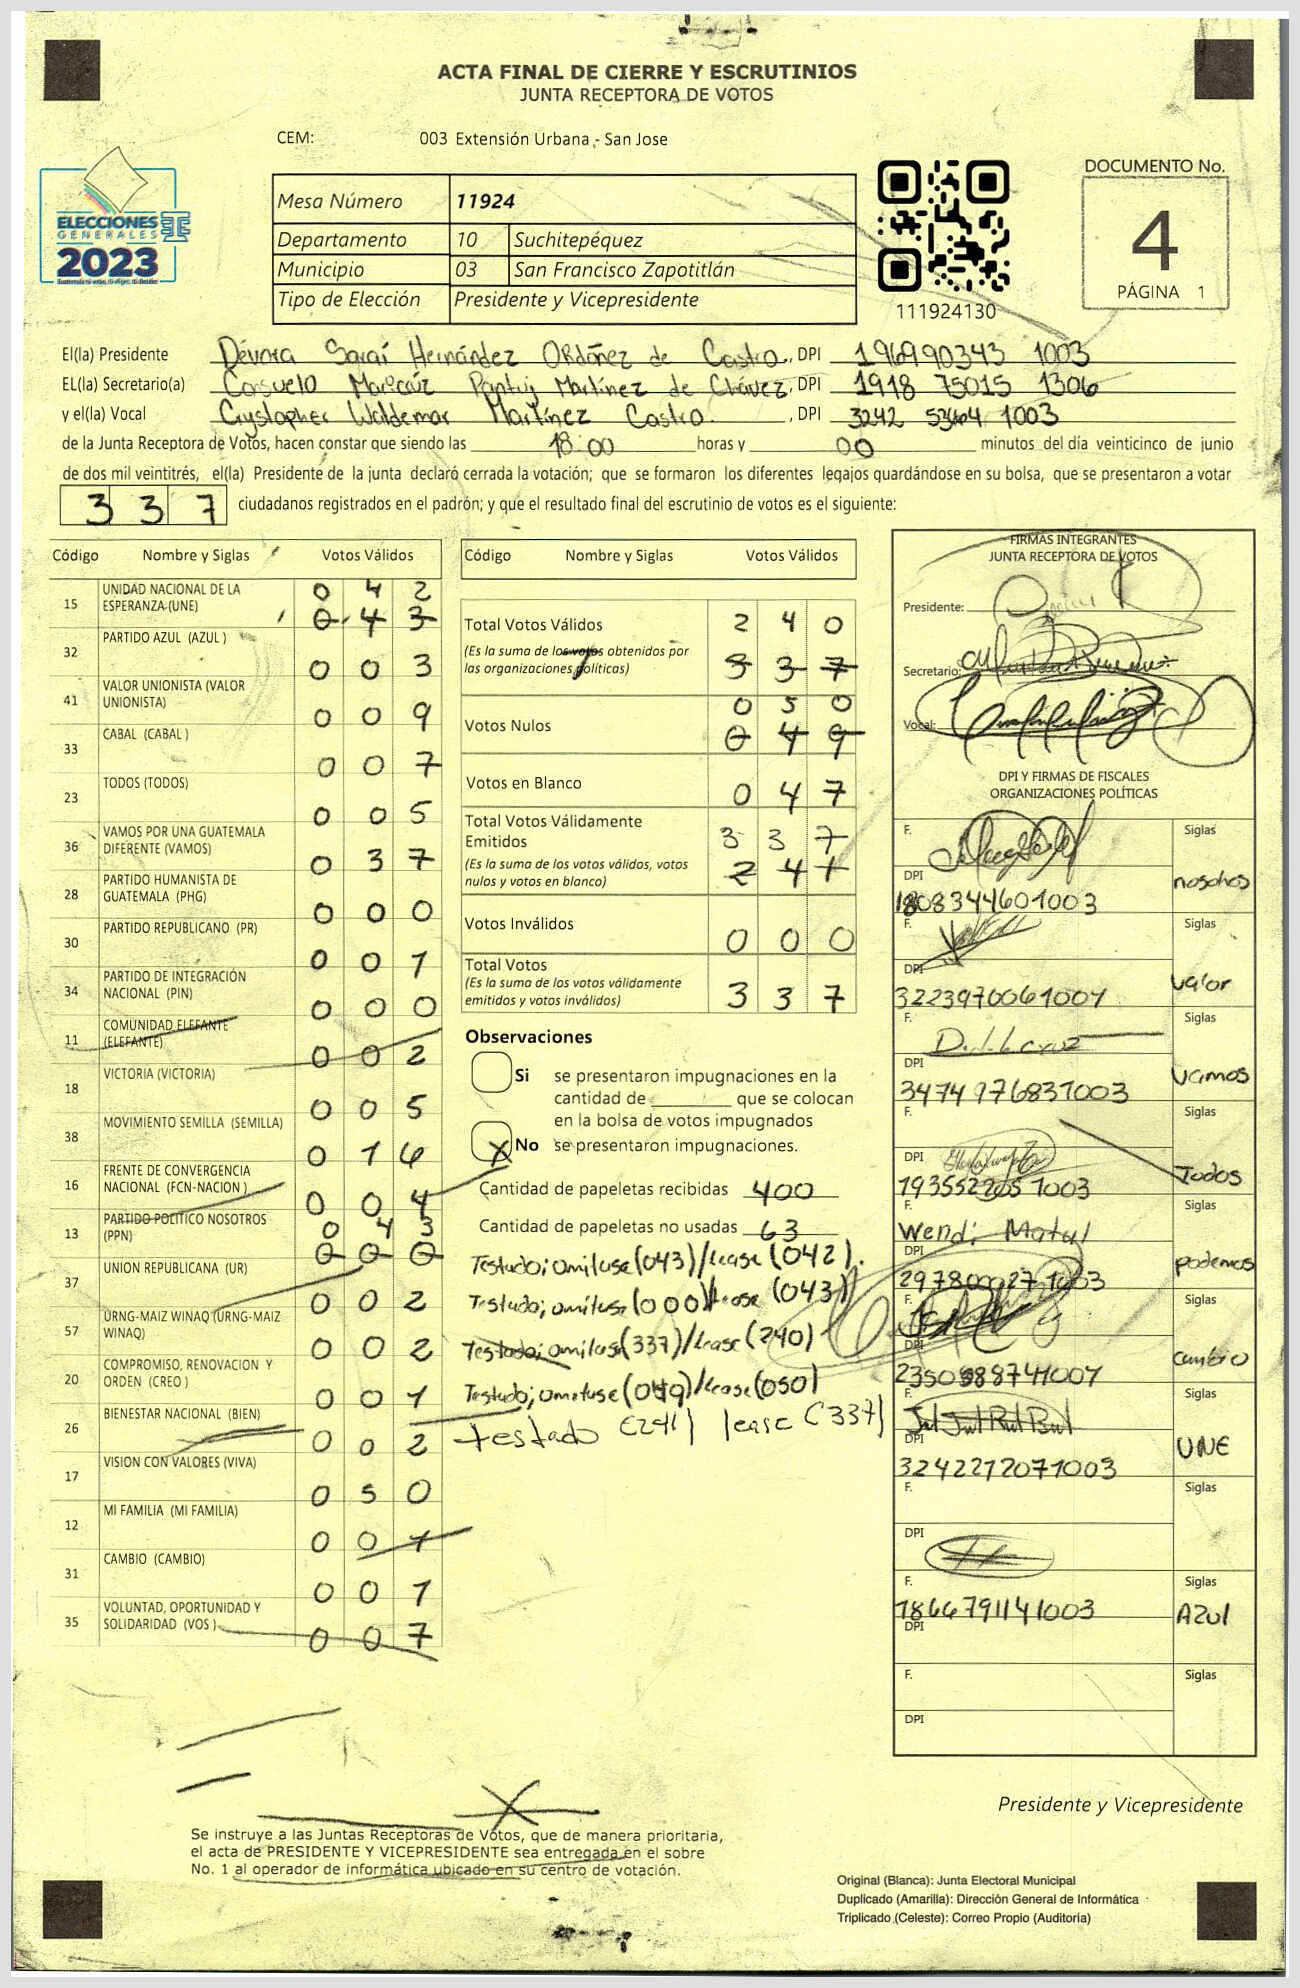 ACTA FINAL DE CIERRE Y ESCRUTINIOS
JUNTA RECEPTORA DE VOTOS
CEM: 003 Extensión Urbana - San Jose
ELECCIONES
GENERALES
2023
Mesa Número 11924
Departamento 10 Suchitepéquez
Municipio 03 San Francisco Zapotitlán
Tipo de Elección Presidente y Vicepresidente
111924130
DOCUMENTO No.
4
PÁGINA 1
El(la) Presidente Dévora Saraí Hernández Ordóñez de Castro., DPI 196990343 1003
EL(la) Secretario(a) Consuelo Martínez de Chávez, DPI 1918 75015 1306
y el(la) Vocal Crystopher Waldemar Martínez Castro. , DPI 3242 1003
de la Junta Receptora de Votos, hacen constar que siendo las 18:00 horas y 00 minutos del día veinticinco de junio
de dos mil veintitrés, el(la) Presidente de la junta declaró cerrada la votación; que se formaron los diferentes legajos guardándose en su bolsa, que se presentaron a votar
337 ciudadanos registrados en el padrón; y que el resultado final del escrutinio de votos es el siguiente:
Código Nombre y Siglas Votos Válidos
15 UNIDAD NACIONAL DE LA ESPERANZA (UNE) 0 4 2
0 4 3
32 PARTIDO AZUL (AZUL ) 0 0 3
41 VALOR UNIONISTA (VALOR UNIONISTA) 0 0 9
33 CABAL (CABAL ) 0 0 7
23 TODOS (TODOS) 0 0 5
36 VAMOS POR UNA GUATEMALA DIFERENTE (VAMOS) 0 3 7
28 PARTIDO HUMANISTA DE GUATEMALA (PHG) 0 0 0
30 PARTIDO REPUBLICANO (PR) 0 0 1
34 PARTIDO DE INTEGRACIÓN NACIONAL (PIN) 0 0 0
11 COMUNIDAD ELEFANTE (ELEFANTE) 0 0 2
18 VICTORIA (VICTORIA) 0 0 5
38 MOVIMIENTO SEMILLA (SEMILLA) 0 1 6
16 FRENTE DE CONVERGENCIA NACIONAL (FCN-NACION ) 0 0 4
13 PARTIDO POLITICO NOSOTROS (PPN) 0 4 3
0 0 0
37 UNION REPUBLICANA (UR) 0 0 2
57 URNG-MAIZ WINAQ (URNG-MAIZ WINAQ) 0 0 2
20 COMPROMISO, RENOVACION Y ORDEN (CREO ) 0 0 1
26 BIENESTAR NACIONAL (BIEN) 0 0 2
17 VISION CON VALORES (VIVA) 0 5 0
12 MI FAMILIA (MI FAMILIA) 0 0 1
31 CAMBIO (CAMBIO) 0 0 1
35 VOLUNTAD, OPORTUNIDAD Y SOLIDARIDAD (VOS ) 0 0 7
Código Nombre y Siglas Votos Válidos
Total Votos Válidos 2 4 0
(Es la suma de los votos obtenidos por las organizaciones políticas) 3 3 7
Votos Nulos 0 5 0
0 4 9
Votos en Blanco 0 4 7
Total Votos Válidamente Emitidos 3 3 7
(Es la suma de los votos válidos, votos nulos y votos en blanco) 2 4 1
Votos Inválidos 0 0 0
Total Votos
(Es la suma de los votos válidamente emitidos y votos inválidos) 3 3 7
Observaciones
Si se presentaron impugnaciones en la
cantidad de ________ que se colocan
en la bolsa de votos impugnados
X No se presentaron impugnaciones.
Cantidad de papeletas recibidas 400
Cantidad de papeletas no usadas 63
Testado; omitase (043)/lease (042).
Testado; omitase (000)/lease (043)
Testado; omitase (337)/lease (240)
Testado; omitase (049)/lease (050)
testado (241) lease (337)
FIRMAS INTEGRANTES
JUNTA RECEPTORA DE VOTOS
Presidente:
Secretario:
Vocal:
DPI Y FIRMAS DE FISCALES
ORGANIZACIONES POLÍTICAS
F. Siglas
DPI 1808344601003 nosotros
F. Siglas
DPI 3223970061004 valor
F. Siglas
DPI 3474976831003 vamos
F. Siglas
DPI 1003 Todos
F. Wendi Matul Siglas
DPI podemos
F. Siglas
DPI cambio
F. Siglas
DPI 3242212071003 UNE
F. Siglas
DPI
F. Siglas
1866791141003 AZUl
DPI
F. Siglas
DPI
Presidente y Vicepresidente
Se instruye a las Juntas Receptoras de Votos, que de manera prioritaria,
el acta de PRESIDENTE Y VICEPRESIDENTE sea entregada en el sobre
No. 1 al operador de informática ubicado en su centro de votación.
Original (Blanca): Junta Electoral Municipal
Duplicado (Amarilla): Dirección General de Informática
Triplicado (Celeste): Correo Propio (Auditoría)